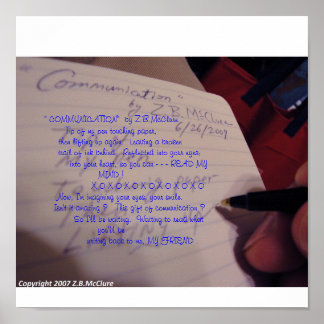 "Communication"
by Z.B.McClure
6/26/2007
"COMMUNICATION" by Z.B.McClure
Tip of my pen touching paper,
then lifting up again. Leaving a
trail of ink behind. Reflected into your eyes,
into your heart, so you can --- READ MY
MIND!
XOXOXOXOXOXOXO
Now, I'm imagining your eyes, your smile.
Isn't it amazing? This gift of communication?
So I'll be waiting. Waiting to read what
you'll be
writing back to me, MY FRIEND
paper
Copyright 2007 Z.B.McClure